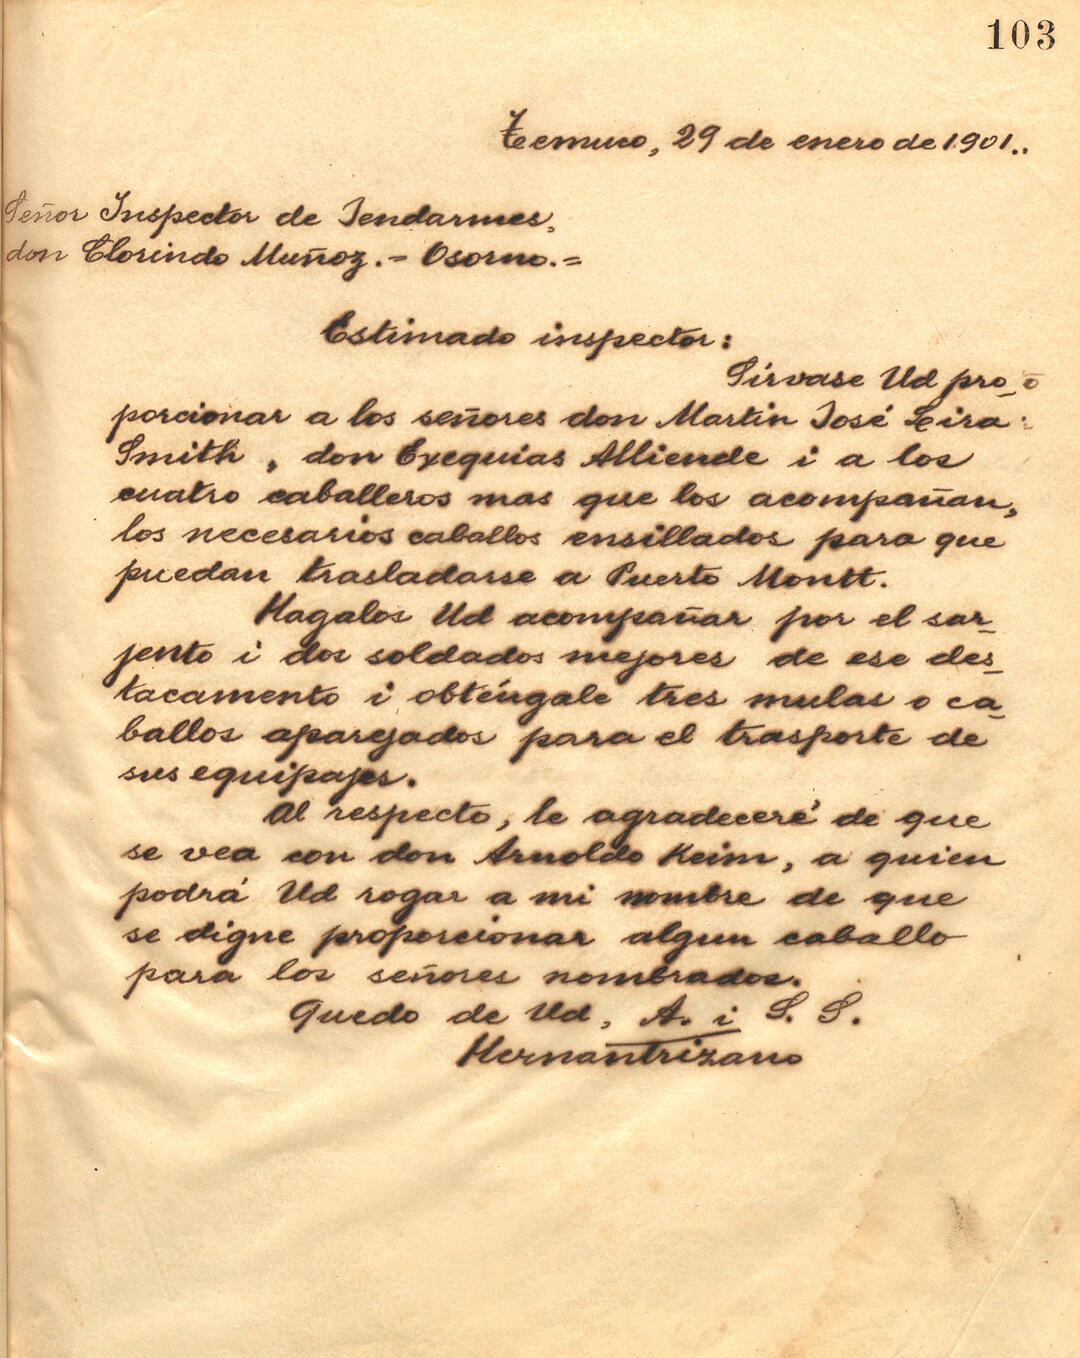 103
Temuco, 29 de enero de 1901..
Señor Inspector de Jendarmes,
don Clorindo Muñoz.= Osorno.=
Estimado inspector:
Sírvase Ud pro_
porcionar a los señores don Martin José Lira
Smith, don Exequias Alliende i a los
cuatro caballeros mas que los acompañan,
los necesarios caballos ensillados para que
puedan trasladarse a Puerto Montt.
Hagalos Ud acompañar por el sar_
jento i dos soldados mejores de ese des_
tacamento i obténgale tres mulas o ca_
ballos aparejados para el trasporte de
sus equipajes.
Al respecto, le agradeceré de que
se vea con don Arnoldo Keim, a quien
podrá Ud rogar a mi nombre de que
se digne proporcionar algun caballo
para los señores nombrados.
Quedo de Ud, A. i S. S.
Hernantrizano